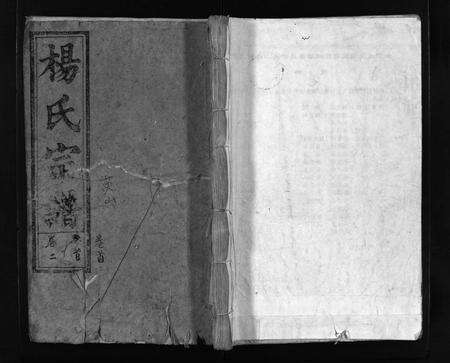 楊氏宗譜
卷二
卷首